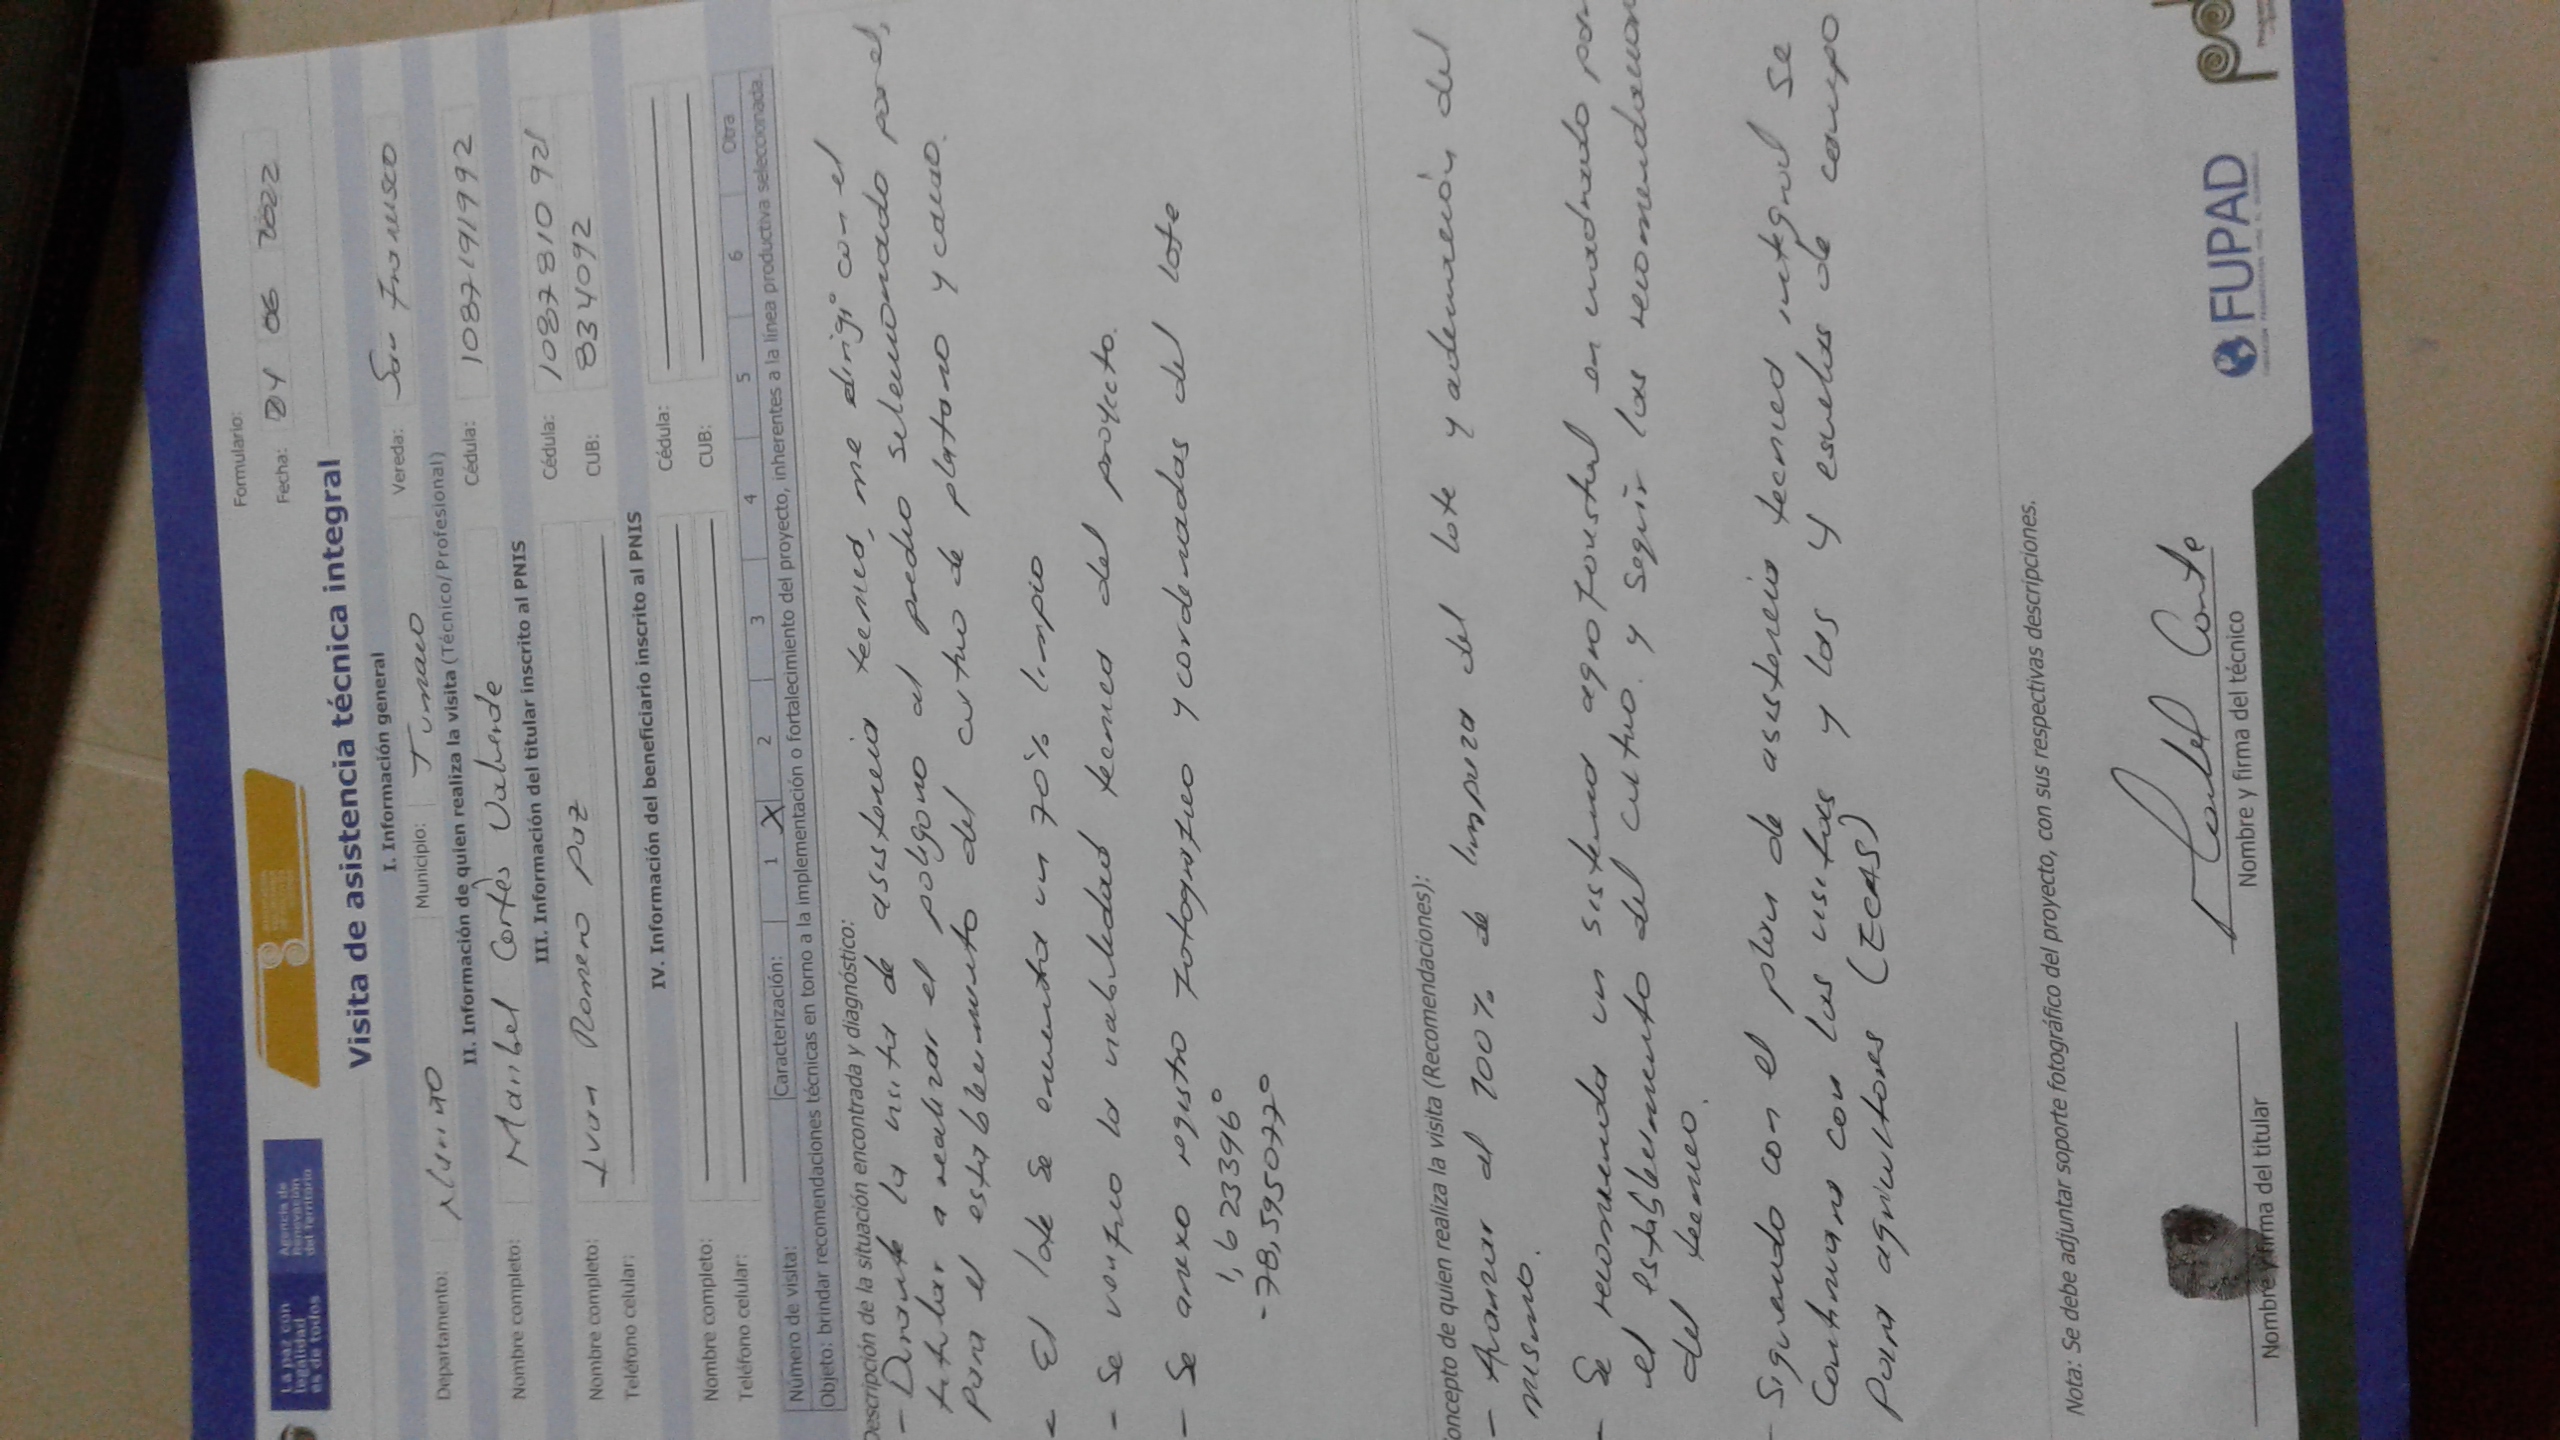 La paz con
legalidad
es de todos
Agencia de
Renovación
del Territorio
Formulario:
Fecha: 04 06 2022
Visita de asistencia técnica integral
I. Información general
Departamento: Nariño Municipio: Tumaco Vereda: San Francisco
II. Información de quien realiza la visita (Técnico/Profesional)
Nombre completo: Maribel Cortés Valverde Cédula: 1087191992
III. Información del titular inscrito al PNIS
Nombre completo: Ivan Romero Paz Cédula: 1087810921
Teléfono celular: CUB: 834092
IV. Información del beneficiario inscrito al PNIS
Nombre completo: Cédula:
Teléfono celular: CUB:
Número de visita: Caracterización: 1 X 2 3 4 5 6 Otra
Objeto: brindar recomendaciones técnicas en torno a la implementación o fortalecimiento del proyecto, inherentes a la línea productiva seleccionada.
Descripción de la situación encontrada y diagnóstico:
- Durante la visita de asistencia tecnica, me dirigi con el
titular a realizar el poligono al predio seleccionado por el,
para el establecimiento del cultivo de platano y cacao.
- El lote se encuentra un 70% limpio
- Se verifico la viabilidad tecnica del proyecto.
- Se anexo registro fotografico y cordenadas del lote
1,623396°
-78,595077°
oncepto de quien realiza la visita (Recomendaciones):
- Avanzar al 100% de limpieza del lote y adecuación del
mismo.
- Se recomienda un sistema agroforestal en
el establecimiento del cultivo. y seguir las
del tecnico.
- Siguiendo con el plan de asistencia tecnica integral se
continuara con las visitas y las y escuelas de campo
para agricultores (ECAS)
Nota: Se debe adjuntar soporte fotográfico del proyecto, con sus respectivas descripciones.
Nombre y firma del titular
Maribel Corte
Nombre y firma del técnico
FUPAD